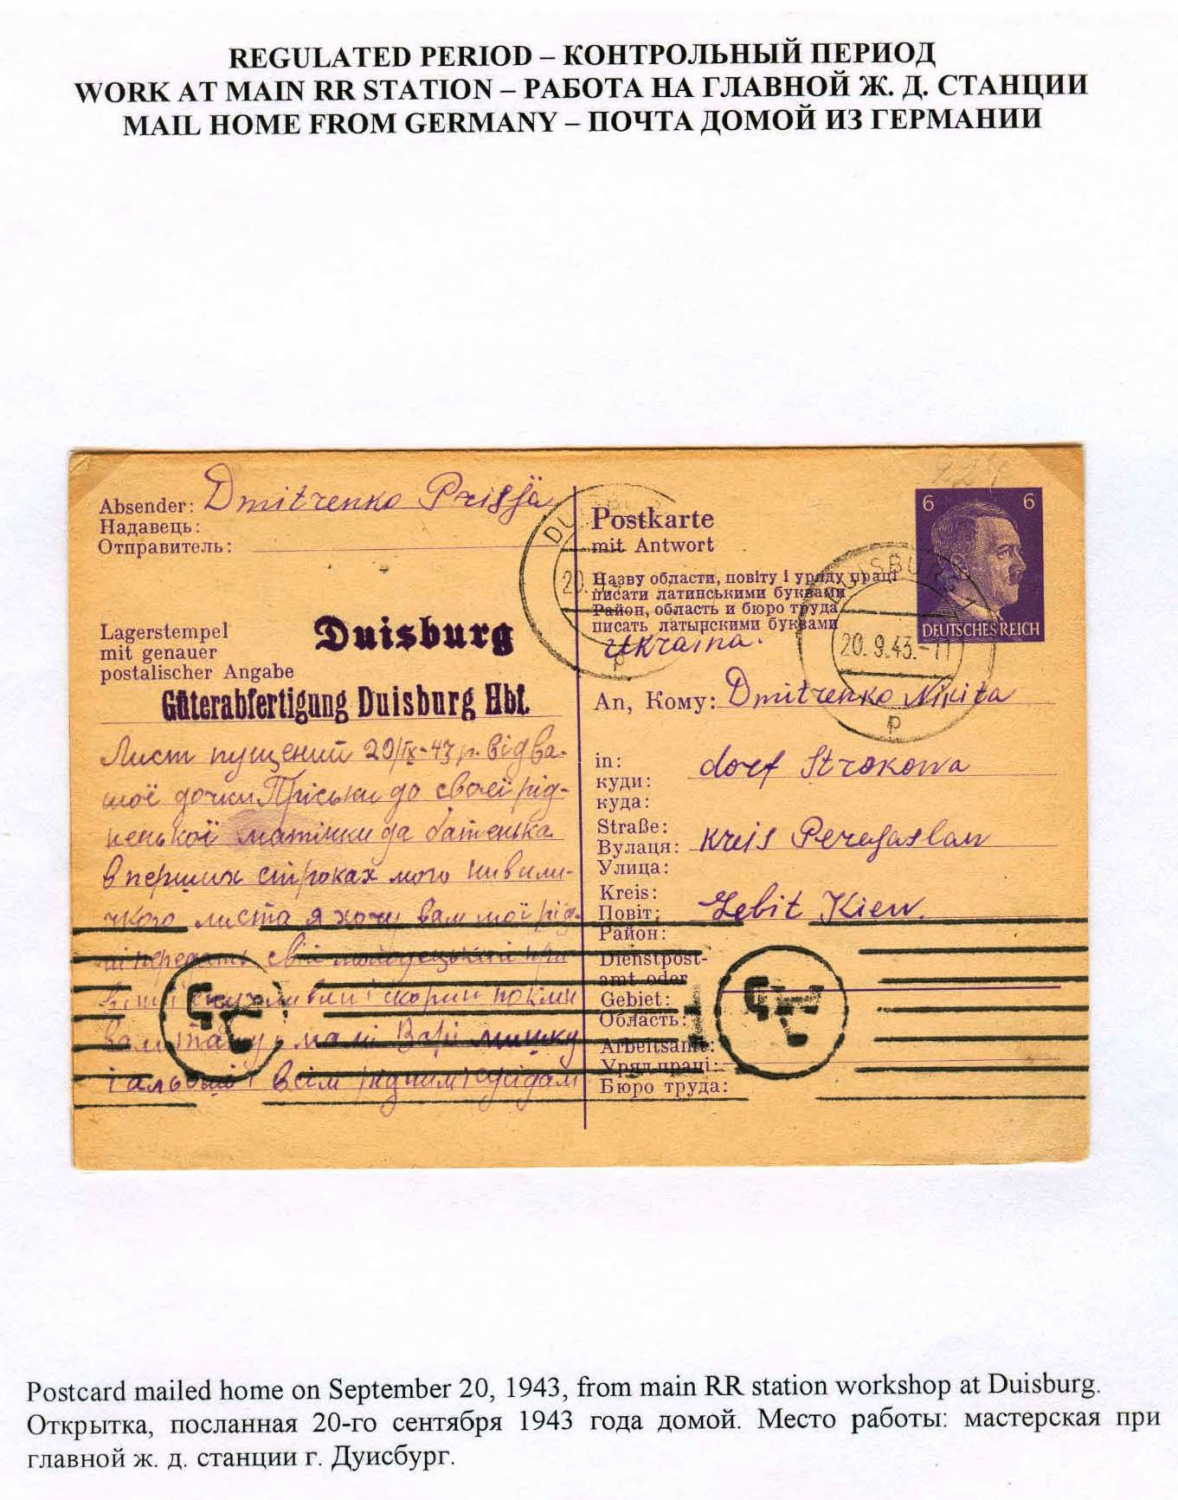 REGULATED PERIOD – КОНТРОЛЬНЫЙ ПЕРИОД
WORK AT MAIN RR STATION – РАБОТА НА ГЛАВНОЙ Ж. Д. СТАНЦИИ
MAIL HOME FROM GERMANY – ПОЧТА ДОМОЙ ИЗ ГЕРМАНИИ
Absender: Dmitrenko Prisja
Надавець:
Отправитель:
Lagerstempel
mit genauer
postalischer Angabe
Duisburg
Güterabfertigung Duisburg Hbf.
Лист пущений 20/IX-43 р. від ва-
шої дочки Пріськи до своєї рід-
ненької матінки да батенька
в перших строках мого
листа я хочу вам мої рід-
ні передать свій
вам тату, мамі Варі
і всім рідним і сусідам
DUISBURG
Postkarte
mit Antwort
Назву области, повіту і уряду праці
писати латинськими буквами
Район, область и бюро труда
писать латынскими буквами
Ukraina.
6 6
DEUTSCHES REICH
DUISBURG
20.9.43.-11
p
An, Кому: Dmitrenko Nikita
in: dorf Strokowa
куди:
куда:
Straße: Kreis Perejaslaw
Вулаця:
Улица:
Kreis: Gebit Kiew.
Повіт:
Район:
Dienstpost-
amt oder
Gebiet:
Область:
Arbeitsamt:
Уряд праці:
Бюро труда:
Postcard mailed home on September 20, 1943, from main RR station workshop at Duisburg.
Открытка, посланная 20-го сентября 1943 года домой. Место работы: мастерская при
главной ж. д. станции г. Дуисбург.